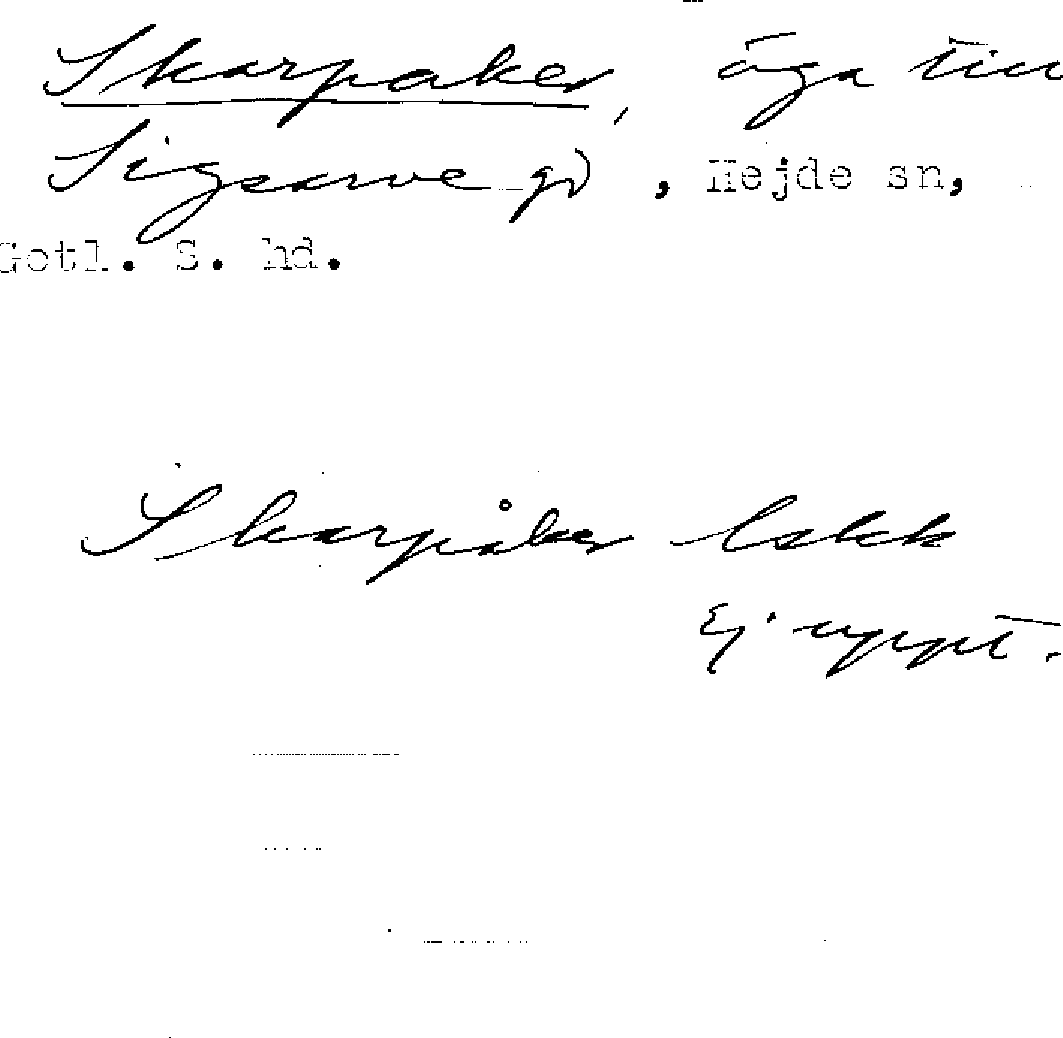 Skarpaker, äga till
Sigsarve gd, Hejde sn,
Gotl. S. hd.
Skarpåker
Ej uppt.